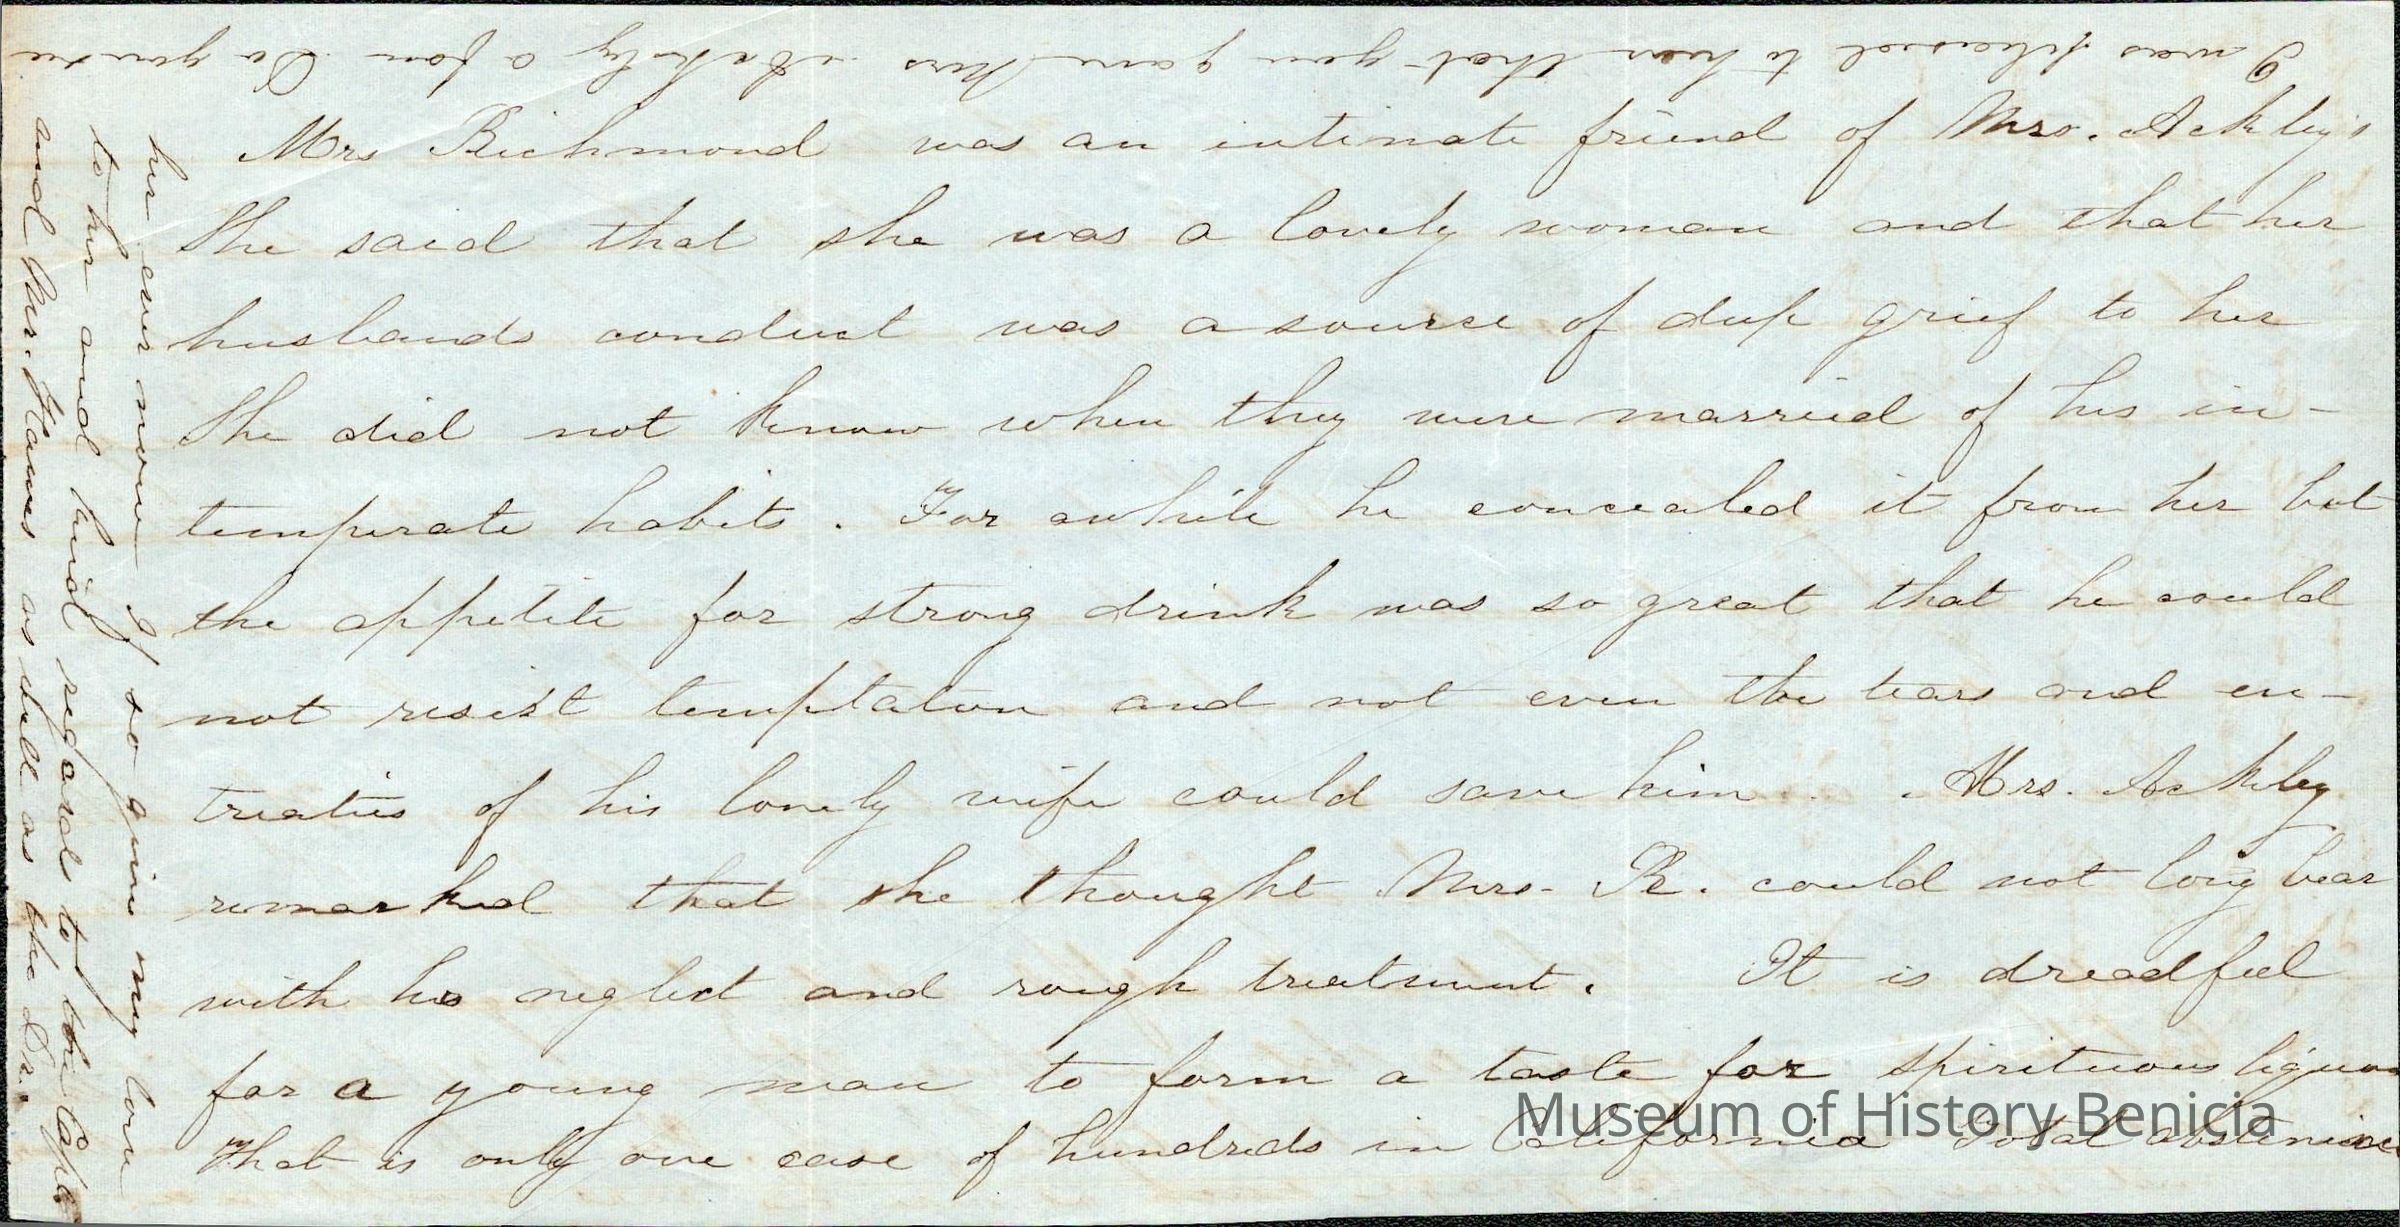 Mrs Richmond was an intimate friend of Mrs. Ackley's
She said that she was a lovely woman and that her
husbands conduct was a source of deep grief to her
She did not know when they were married of his in-
temperate habits. For awhile he concealed it from her but
the appetite for strong drink was so great that he could
not resist temptation and not even the tears and en-
treaties of his lonely wife could save him. Mrs. Ackley
remarked that she thought Mrs. R. could not long bear
with his neglect and rough treatment. It is dreadful
for a young man to form a taste for spirituous liquor
That is only one case of hundreds in California Total abstinence
I was pleased to hear that you gave Mrs. Ackely a fan Do you see
her ever now If so give my love
to her and kind regards to the Capt.
and Mr. as well as the Dr.
Museum of History Benicia